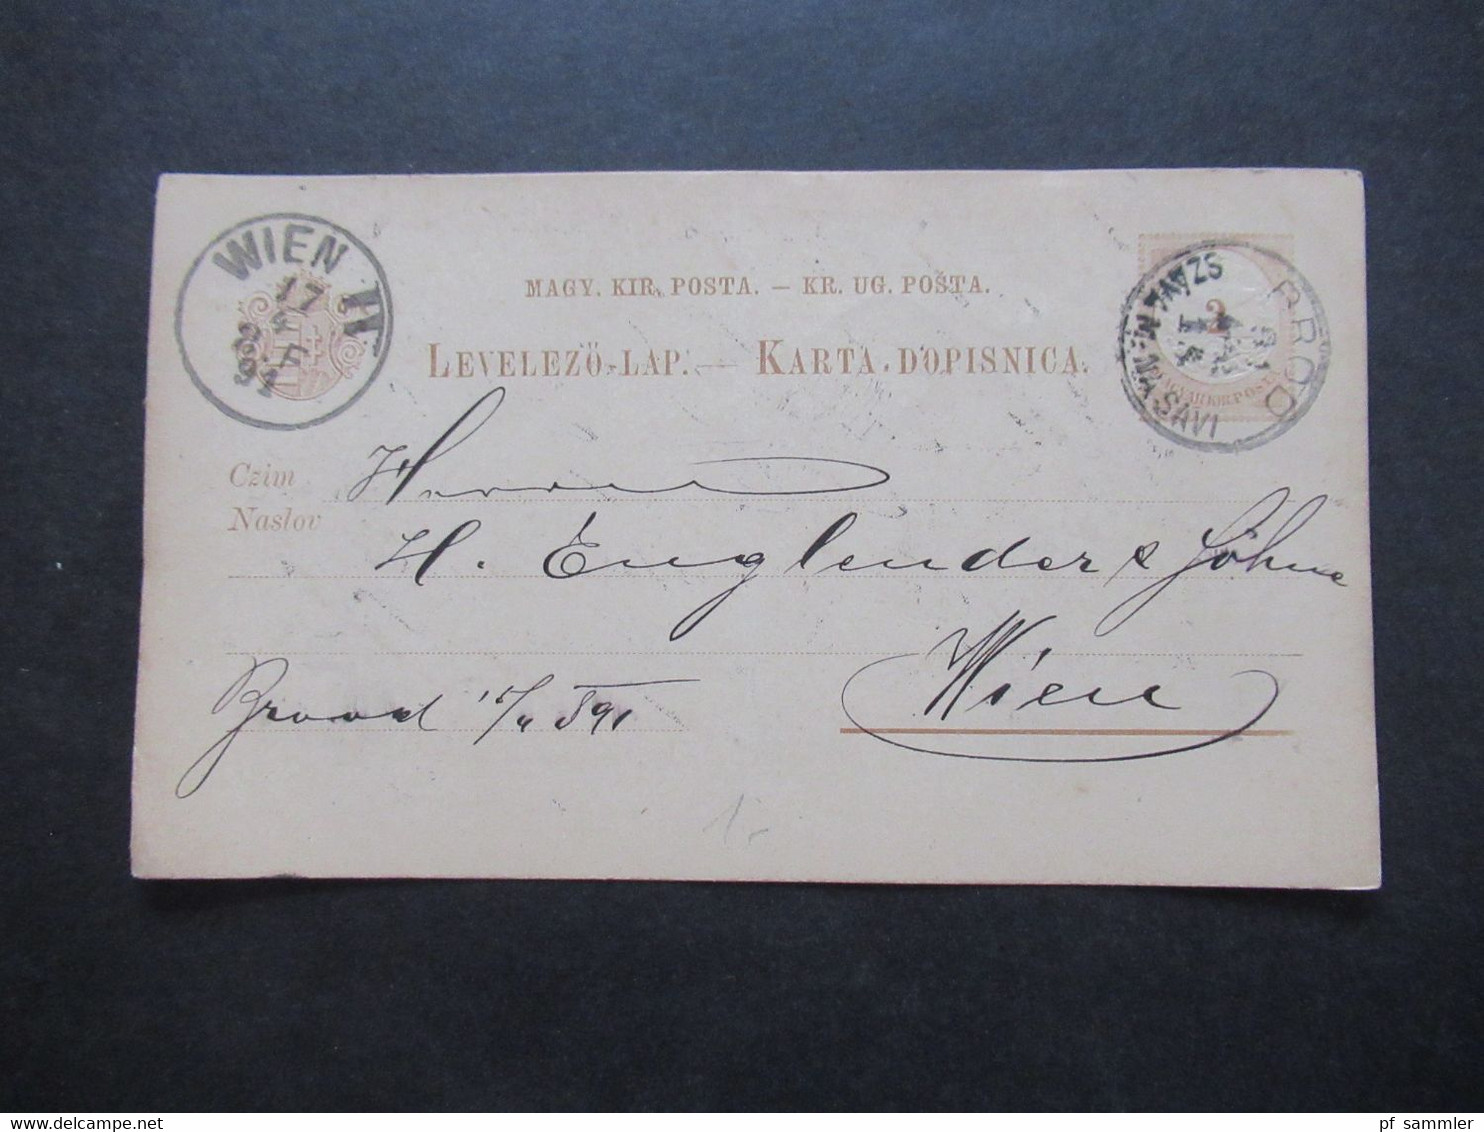 WIEN
17
4
MAGY. KIR. POSTA. — KR. UG. POŠTA.
LEVELEZŐ-LAP. — KARTA DOPISNICA.
BROD
NA SAVI
2
Czim
Naslov
Herren
H. Englender & Söhne
Wien
Brood 15/4 891
pf sammler
www.delcampe.net